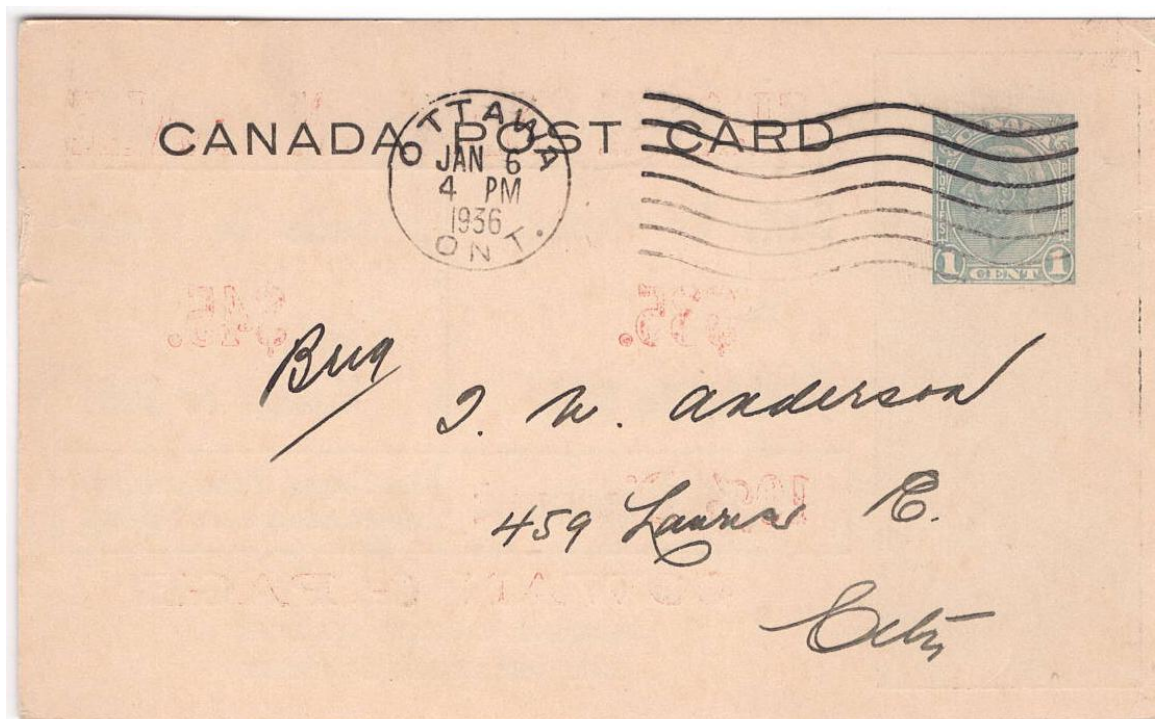 CANADA POST CARD
OTTAWA
JAN 6
4 PM
1936
ONT.
1 CENT 1
$45. $35.
T. W. Anderson
459 Laurier E.
City